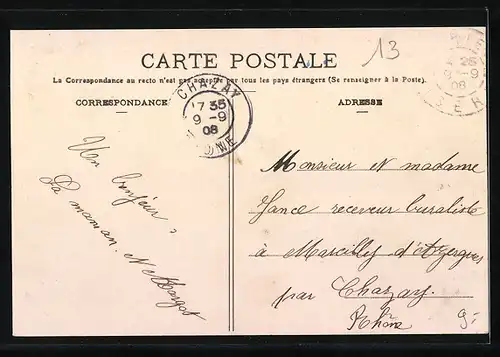 13
CARTE POSTALE
La Correspondance au recto n'est pas acceptée par tous les pays étrangers (Se renseigner à la Poste).
CORRESPONDANCE
ADRESSE
CHAZAY
7 35
9 -9
08
RHONE
25
9 -9
08
Un bonjour
La maman. N Margot
Monsieur et madame
Jance receveur buraliste
à Marcilly d'Azergues
par Chazay.
Rhône
9-